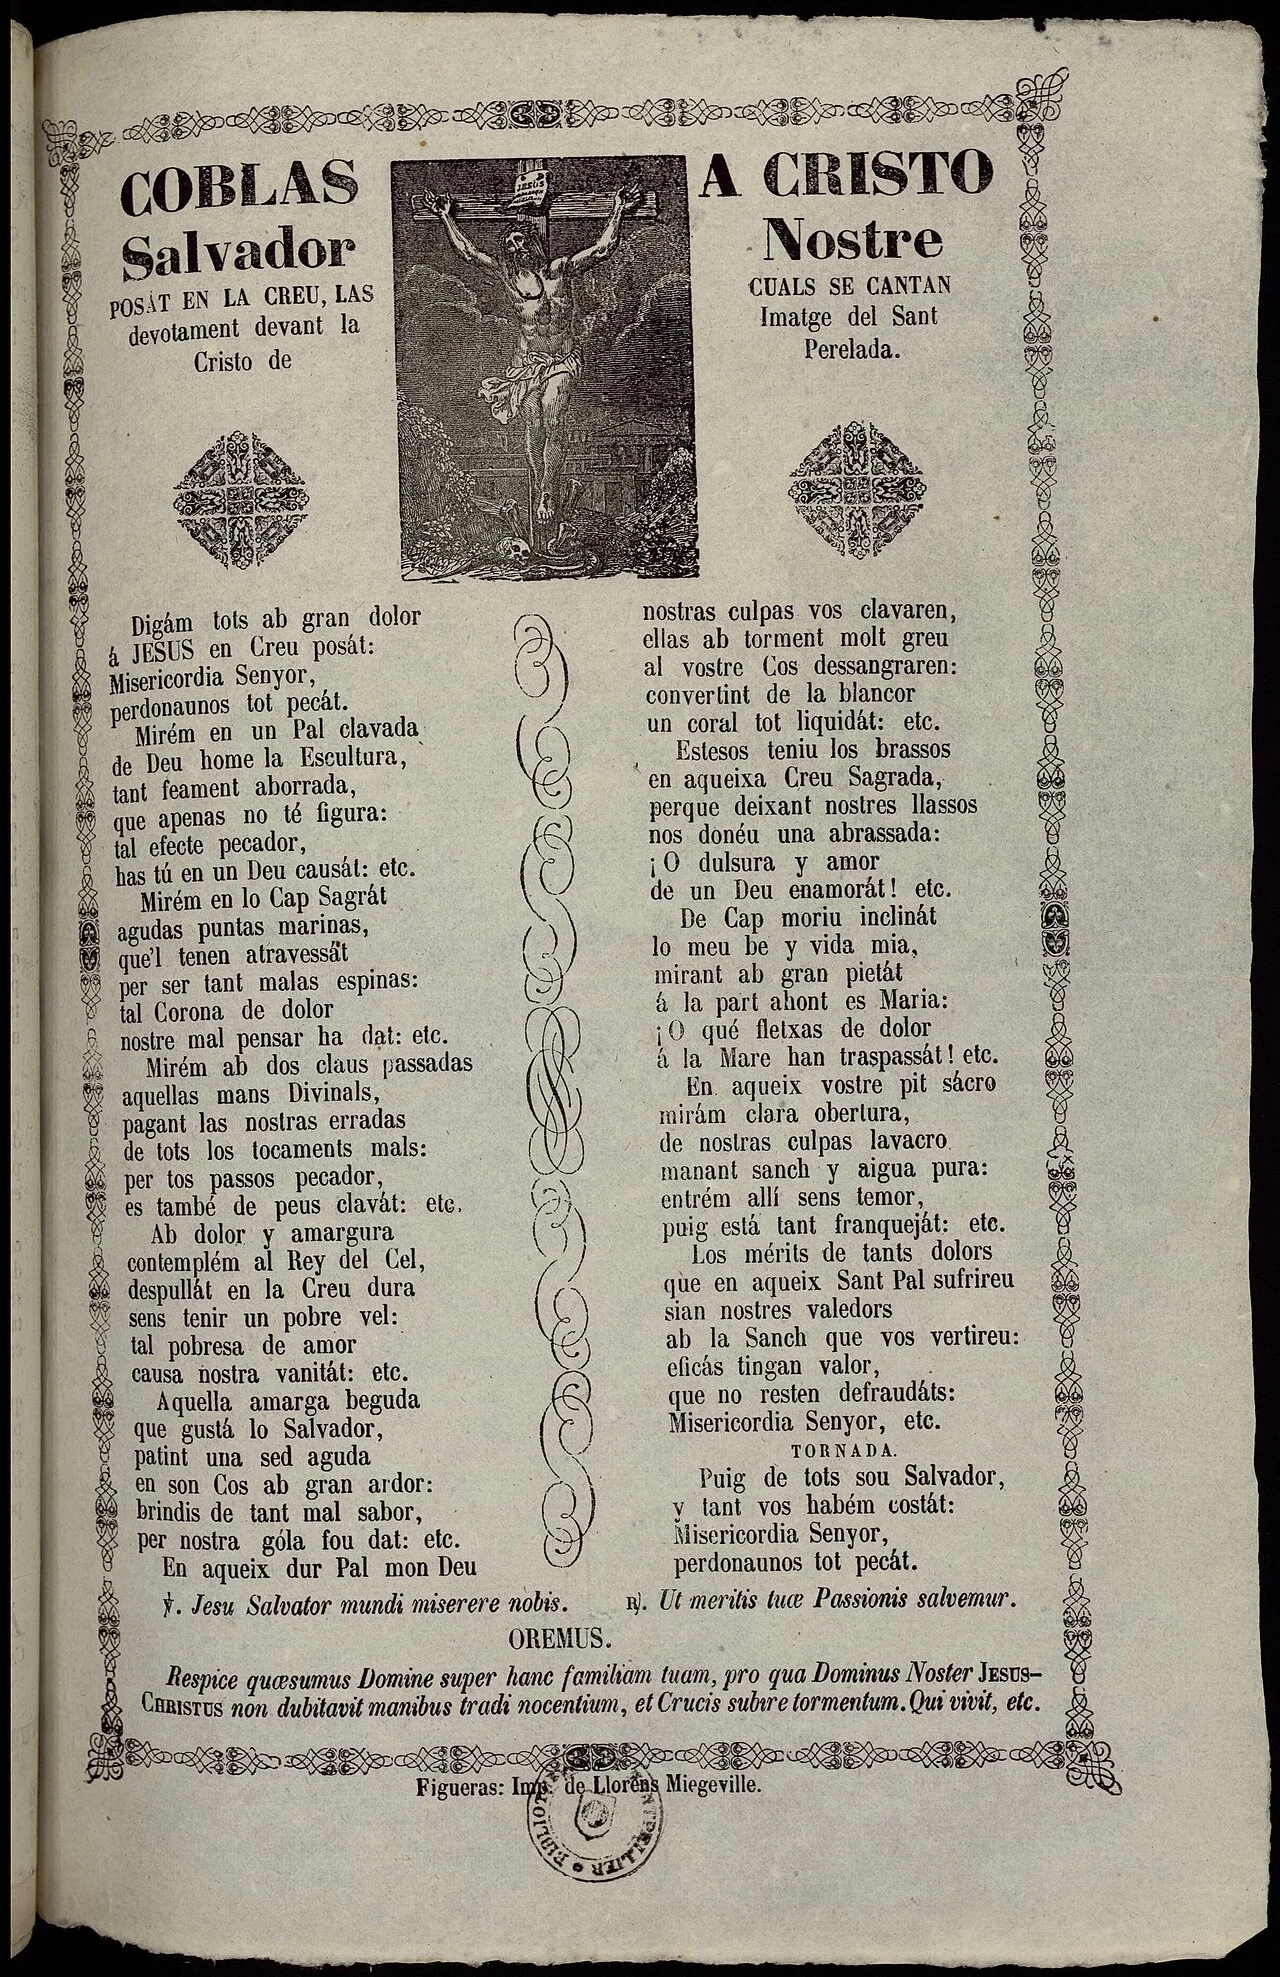 COBLAS A CRISTO
Salvador Nostre
POSÁT EN LA CREU, LAS CUALS SE CANTAN
devotament devant la Imatge del Sant
Cristo de Perelada.
JESUS
Digám tots ab gran dolor
á JESUS en Creu posát:
Misericordia Senyor,
perdonaunos tot pecát.
Mirém en un Pal clavada
de Deu home la Escultura,
tant feament aborrada,
que apenas no té figura:
tal efecte pecador,
has tú en un Deu causát: etc.
Mirém en lo Cap Sagrát
agudas puntas marinas,
que'l tenen atravessát
per ser tant malas espinas:
tal Corona de dolor
nostre mal pensar ha dat: etc.
Mirém ab dos claus passadas
aquellas mans Divinals,
pagant las nostras erradas
de tots los tocaments mals:
per tos passos pecador,
es també de peus clavát: etc.
Ab dolor y amargura
contemplém al Rey del Cel,
despullát en la Creu dura
sens tenir un pobre vel:
tal pobresa de amor
causa nostra vanitát: etc.
Aquella amarga beguda
que gustá lo Salvador,
patint una sed aguda
en son Cos ab gran ardor:
brindis de tant mal sabor,
per nostra góla fou dat: etc.
En aqueix dur Pal mon Deu
nostras culpas vos clavaren,
ellas ab torment molt greu
al vostre Cos dessangraren:
convertint de la blancor
un coral tot liquidát: etc.
Estesos teniu los brassos
en aqueixa Creu Sagrada,
perque deixant nostres llassos
nos donéu una abrassada:
¡O dulsura y amor
de un Deu enamorát! etc.
De Cap moriu inclinát
lo meu be y vida mia,
mirant ab gran pietát
á la part ahont es Maria:
¡O qué fletxas de dolor
á la Mare han traspassát! etc.
En aqueix vostre pit sácro
mirám clara obertura,
de nostras culpas lavacro
manant sanch y aigua pura:
entrém allí sens temor,
puig está tant franqueját: etc.
Los mérits de tants dolors
que en aqueix Sant Pal sufrireu
sian nostres valedors
ab la Sanch que vos vertireu:
eficás tingan valor,
que no resten defraudáts:
Misericordia Senyor, etc.
TORNADA.
Puig de tots sou Salvador,
y tant vos habém costát:
Misericordia Senyor,
perdonaunos tot pecát.
℣. Jesu Salvator mundi miserere nobis. ℟. Ut meritis tuæ Passionis salvemur.
OREMUS.
Respice quæsumus Domine super hanc familiam tuam, pro qua Dominus Noster JESUS-
CHRISTUS non dubitavit manibus tradi nocentium, et Crucis subire tormentum. Qui vivit, etc.
Figueras: Imp. de Llorens Miegeville.